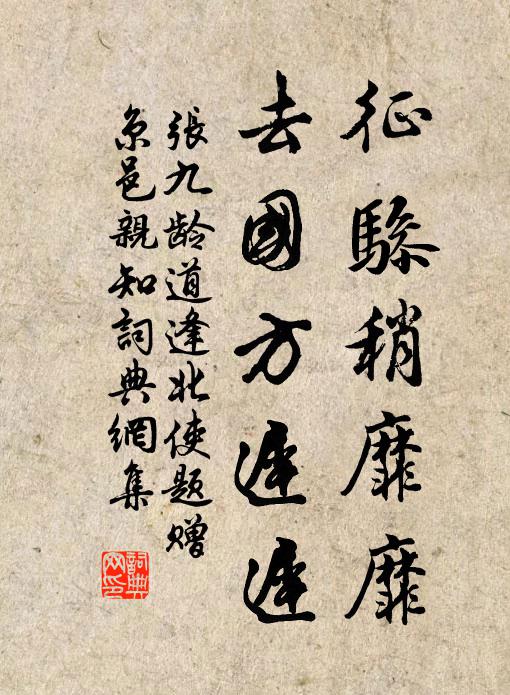 征驂稍靡靡
去國方遲遲
張九龄道逢北使题赠
京邑親知詞典網集
詞典網印